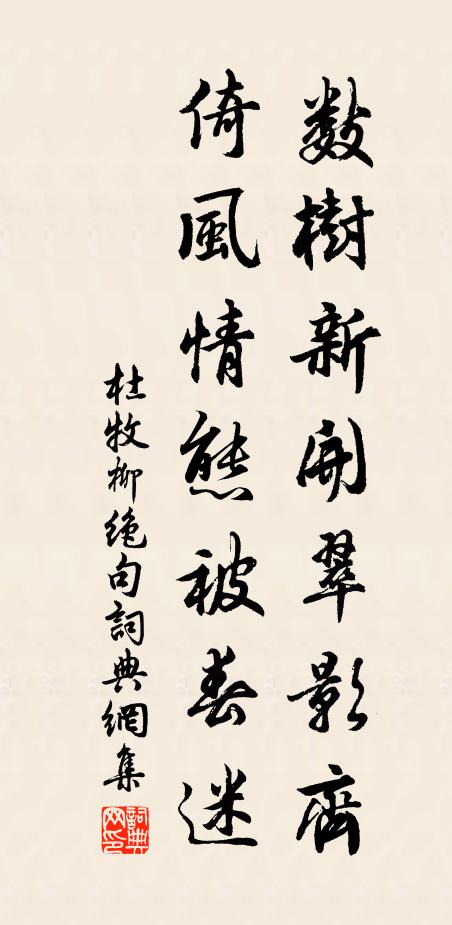 数樹新開翠影齊
倚風情態被春迷
杜牧柳絶句詞典網集
詞典網印